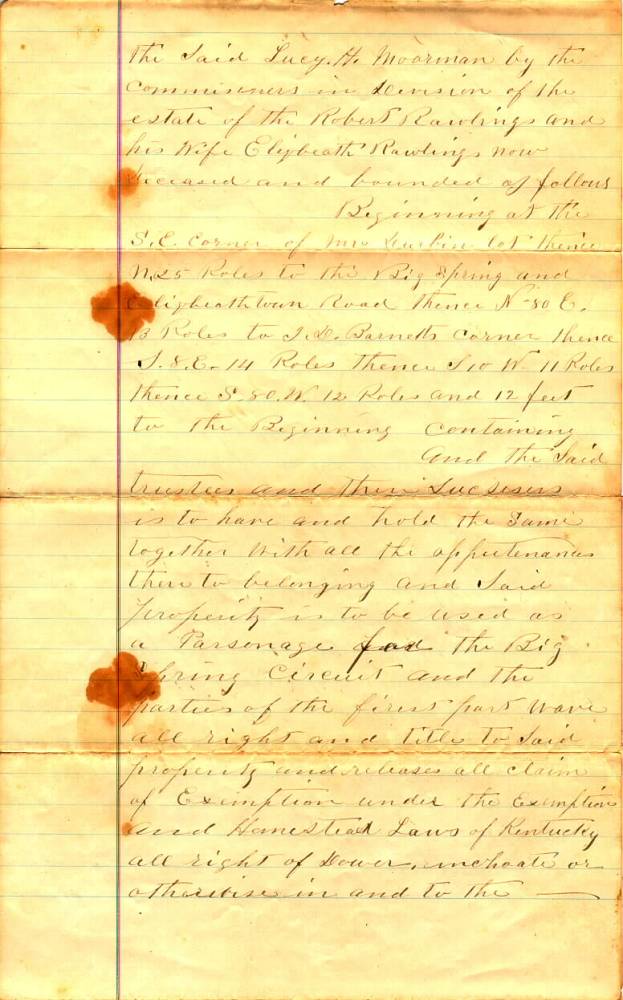 the Said Lucy H. Moorman by the
Commisiners in Devision of the
estate of the Robert Rawlings and
his Wife Elizbeath Rawlings now
deceased and bounded as follows
Beginning at the
S.E. Corner of Mrs Durbin lot thence
N. 25 Poles to the Big Spring and
Elizbeathtown Road thence N-80 E.
13 Poles to J. D. Barnetts Corner thence
S. 8. E. 14 Poles thence S 10 W. 11 Poles
thence S. 80. W. 12 Poles and 12 feet
to the Beginning Containing
and the Said
trustees and their Sucsesers
is to have and hold the Same
together with all the appertenances
there to belonging and Said
property is to be used as
a Parsonage for the Big
Spring Circuit and the
parties of the firest part wave
all right and title to Said
property and releases all claim
of Exemption under the Exemption
and Homestead Laws of Kentucky
all right of Dower, inchoate or
otherwise in and to the